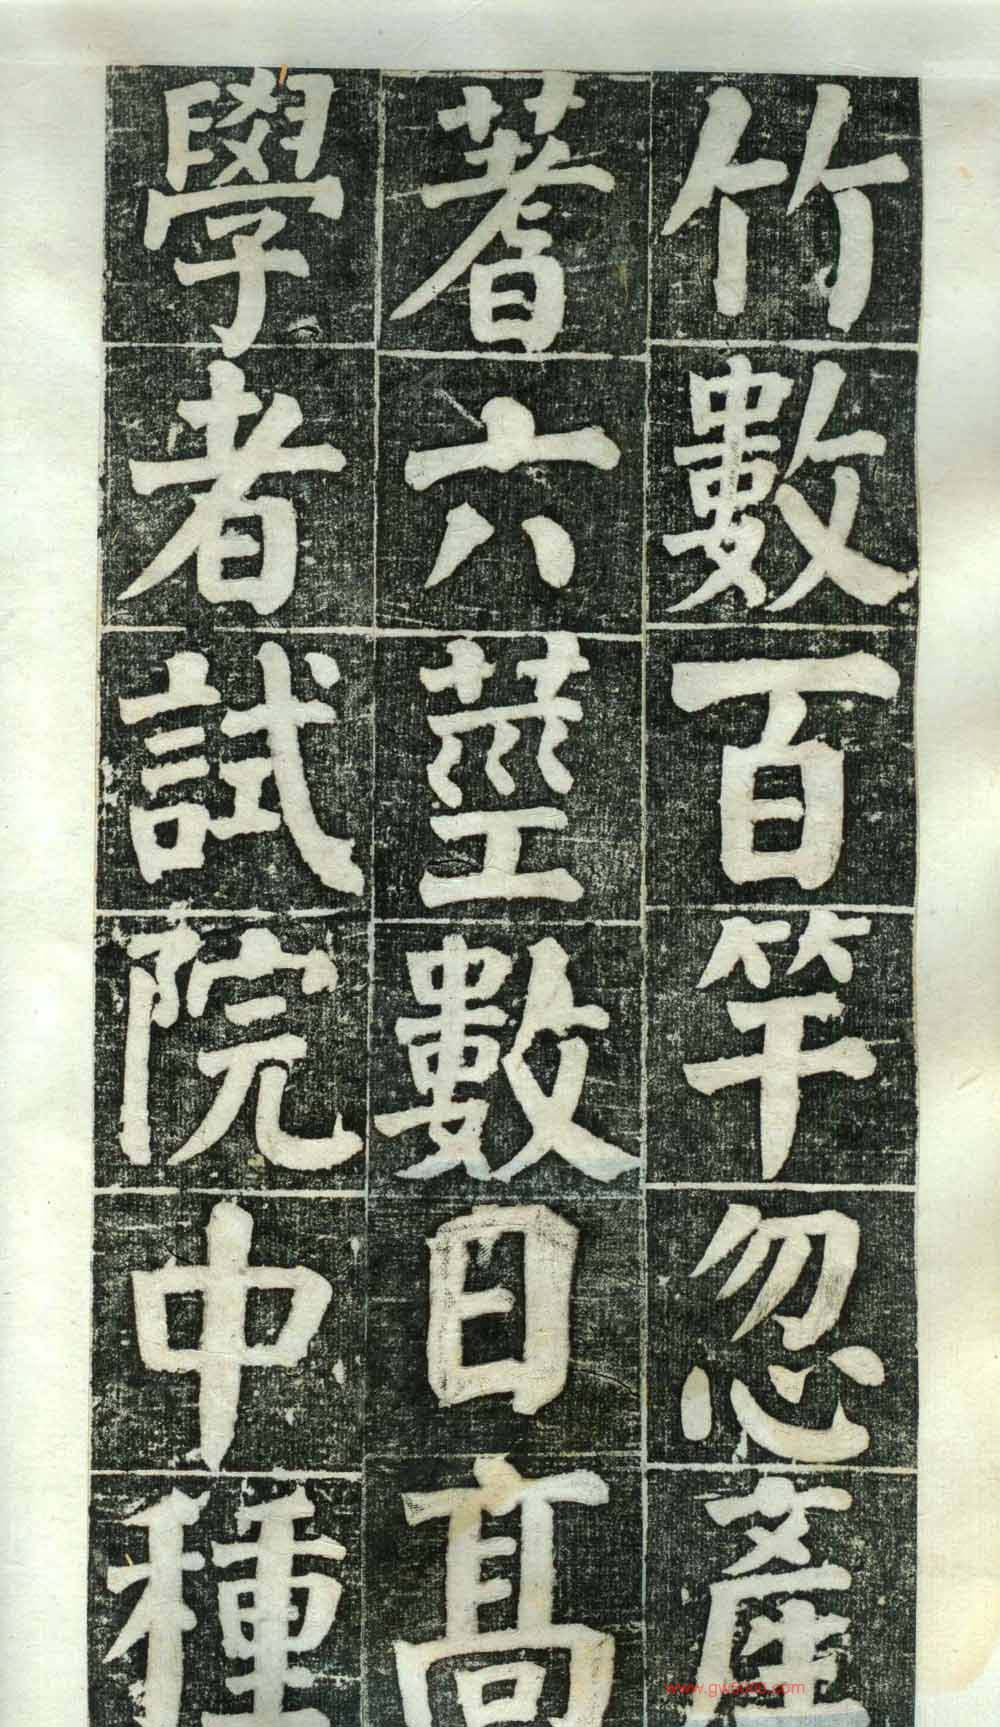 竹數百竿忽產
蓍六莖數日高
學者試院中種
www.gwsoon.com